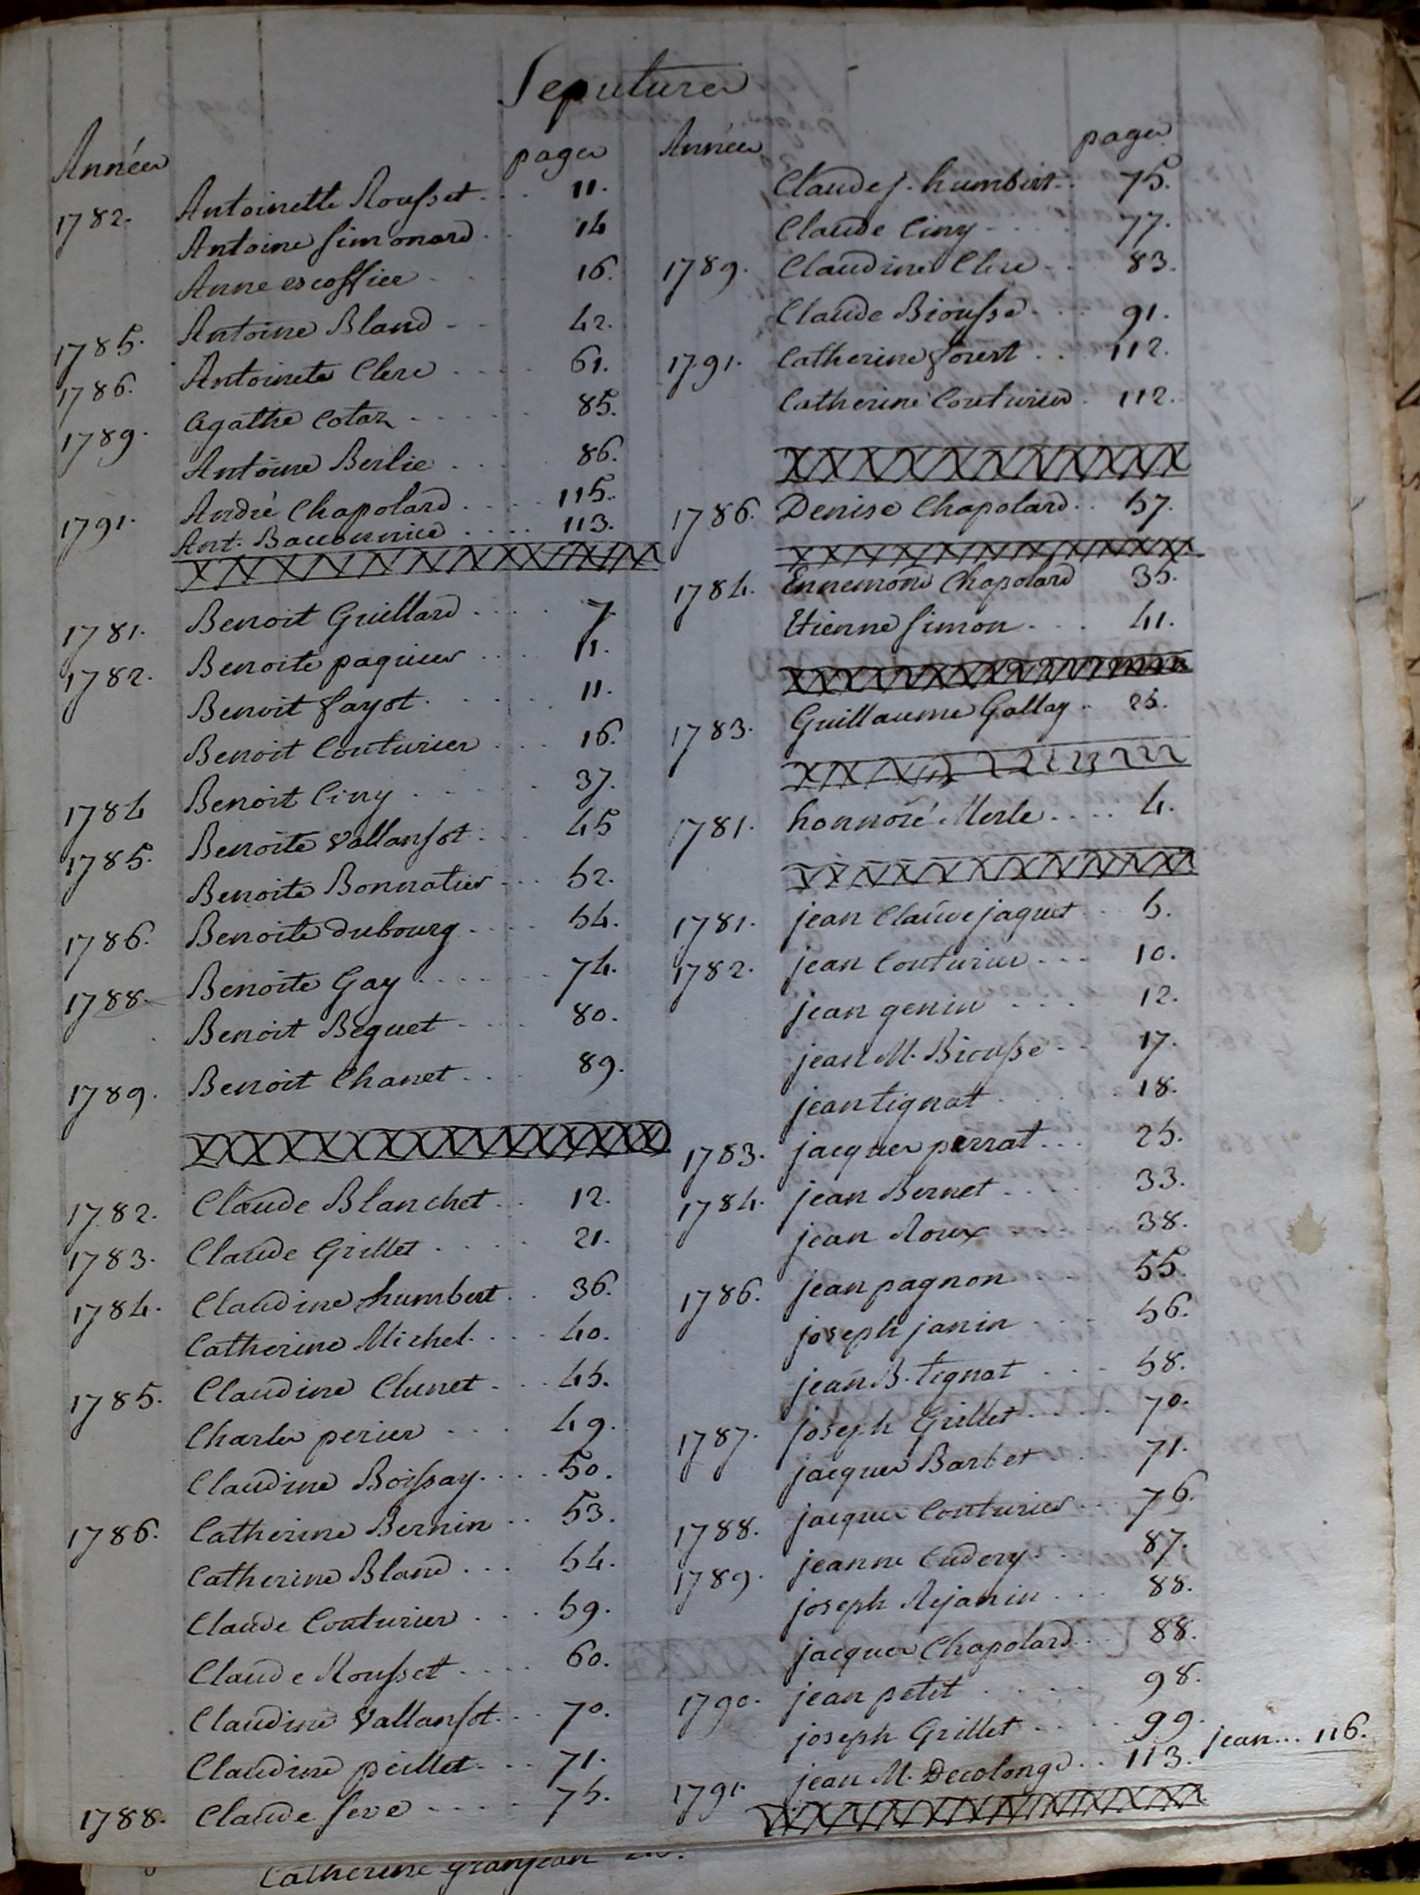 Sepulture
Année pages
1782. Antoinette Rousset 11.
Antoine simonard 14
Anne escoffier 16.
1785. Antoine Bland 42.
1786. Antoinete Clere 61.
1789. Agathe Cotaz 85.
Antoine Berlie 86.
1791. André Chapolard 115.
Ant. 113.
1781. Benoit Guillard 7.
1782. Benoite paquier 11.
Benoit fayot 11.
Benoit Couturier 16.
1784 Benoit Ciny 37.
1785. Benoite Vallansot 45
Benoite Bonnatier 52.
1786. Benoite dubourg 54.
1788. Benoite Gay 74.
Benoit Beguet 80.
1789. Benoit Chanet 89.
1782. Claude Blanchet 12.
1783. Claude Grillet 21.
1784. Claudine humbert 36.
Catherine Michel 40.
1785. Claudine Clunet 45.
Charles perier 49.
Claudine Boissay 50.
1786. Catherine Bernin 53.
Catherine Bland 54.
Claude Couturier 59.
Claude Rousset 60.
Claudine Vallansot 70.
Claudine peillet 71.
1788. Claude seve 75.
Année pages
Claude j. humbert 75.
Claude Ciny 77.
1789. Claudine Clere 83.
Claude Biousse 91.
1791. Catherine forest 112.
Catherine Couturier 112.
1786. Denise Chapolard 57.
1784. Ennemond Chapolard 35.
Etienne simon 41.
1783. Guillaume Gallay 25.
1781. honnoré Merle 4.
1781. jean Claude jaquet 5.
1782. jean Couturier 10.
jean genin 12.
jean M. Biousse 17.
jean tignat 18.
1783. jacques perrat 25.
1784. jean Bernet 33.
jean Roux 38.
1786. jean pagnon 55.
joseph janin 56.
jean B. tignat 58.
1787. joseph Grillet 70.
jacques Barbet 71.
1788. jacques Couturier 76.
1789. jeanne Cudery 87.
joseph Rejanin 88.
jacques Chapolard 88.
1790. jean petit 98.
joseph Grillet 99.
1791. jean M. Decolonge 113. jean... 116.
Catherine granjean